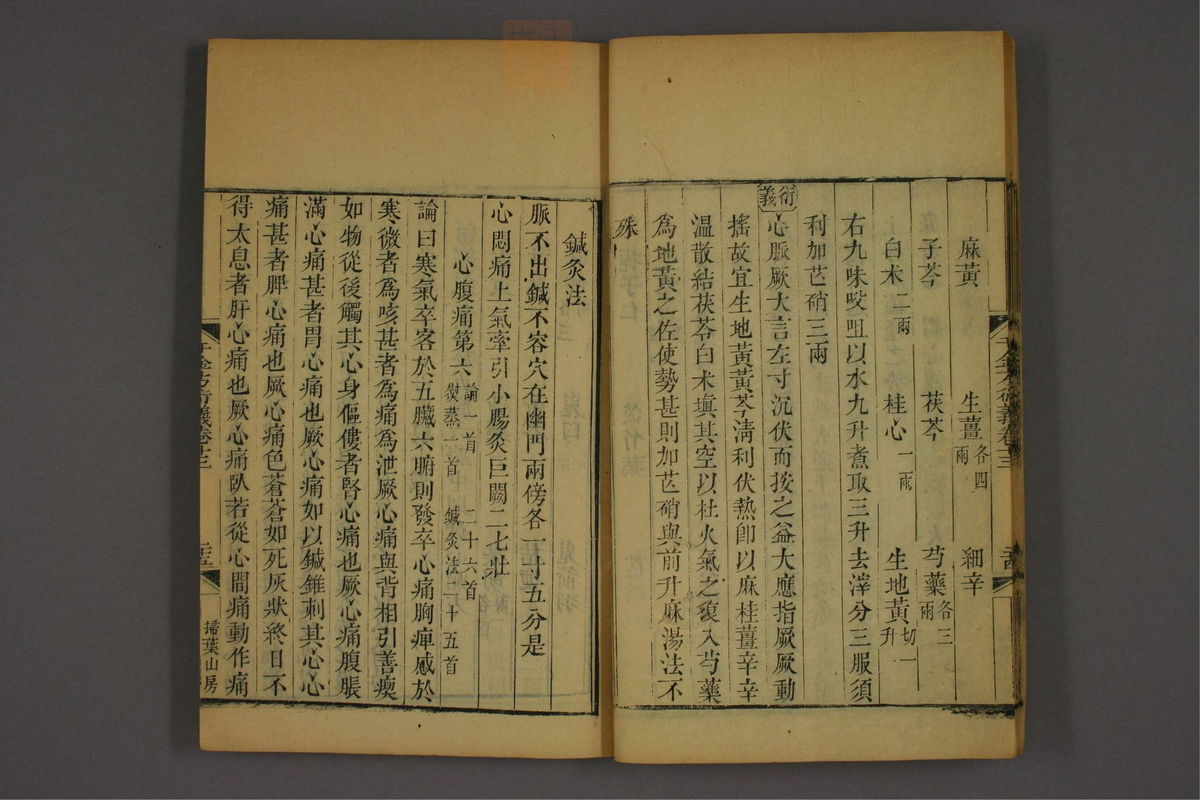 麻黃 生薑各四兩 細辛
子芩 茯苓 芍藥各三兩
白朮二兩 桂心一兩 生地黃切一升
右九味㕮咀以水九升煮取三升去滓分三服須
利加芒硝三兩
衍義心脈厥大言左寸沉伏而按之益大應指厥厥動
搖故宜生地黃黃芩淸利伏熱卽以麻桂薑辛辛
溫散結茯苓白朮塡其空以杜火氣之復入芍藥
爲地黃之佐使勢甚則加芒硝與前升麻湯法不
殊
千金方衍義卷十三
鍼灸法
脈不出鍼不容穴在幽門兩傍各一寸五分是
心悶痛上氣牽引小腸灸巨闕二七壯
心腹痛第六論一首 二十六首 熨蒸一首 鍼灸法二十五首
論曰寒氣卒客於五臟六腑則發卒心痛胸痺感於
寒微者爲咳甚者爲痛爲泄厥心痛與背相引善瘈
如物從後觸其心身傴僂者腎心痛也厥心痛腹脹
滿心痛甚者胃心痛也厥心痛如以鍼錐刺其心心
痛甚者脾心痛也厥心痛色蒼蒼如死灰狀終日不
得太息者肝心痛也厥心痛臥若從心間痛動作痛
千金方衍義卷十三
掃葉山房